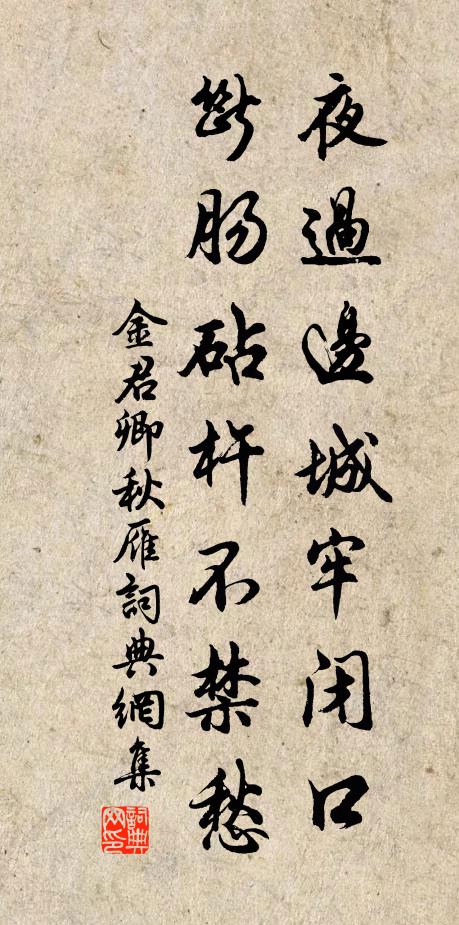 夜過邊城牢闭口
斷腸砧杵不禁愁
金君卿秋雁詞典網集
詞典網印